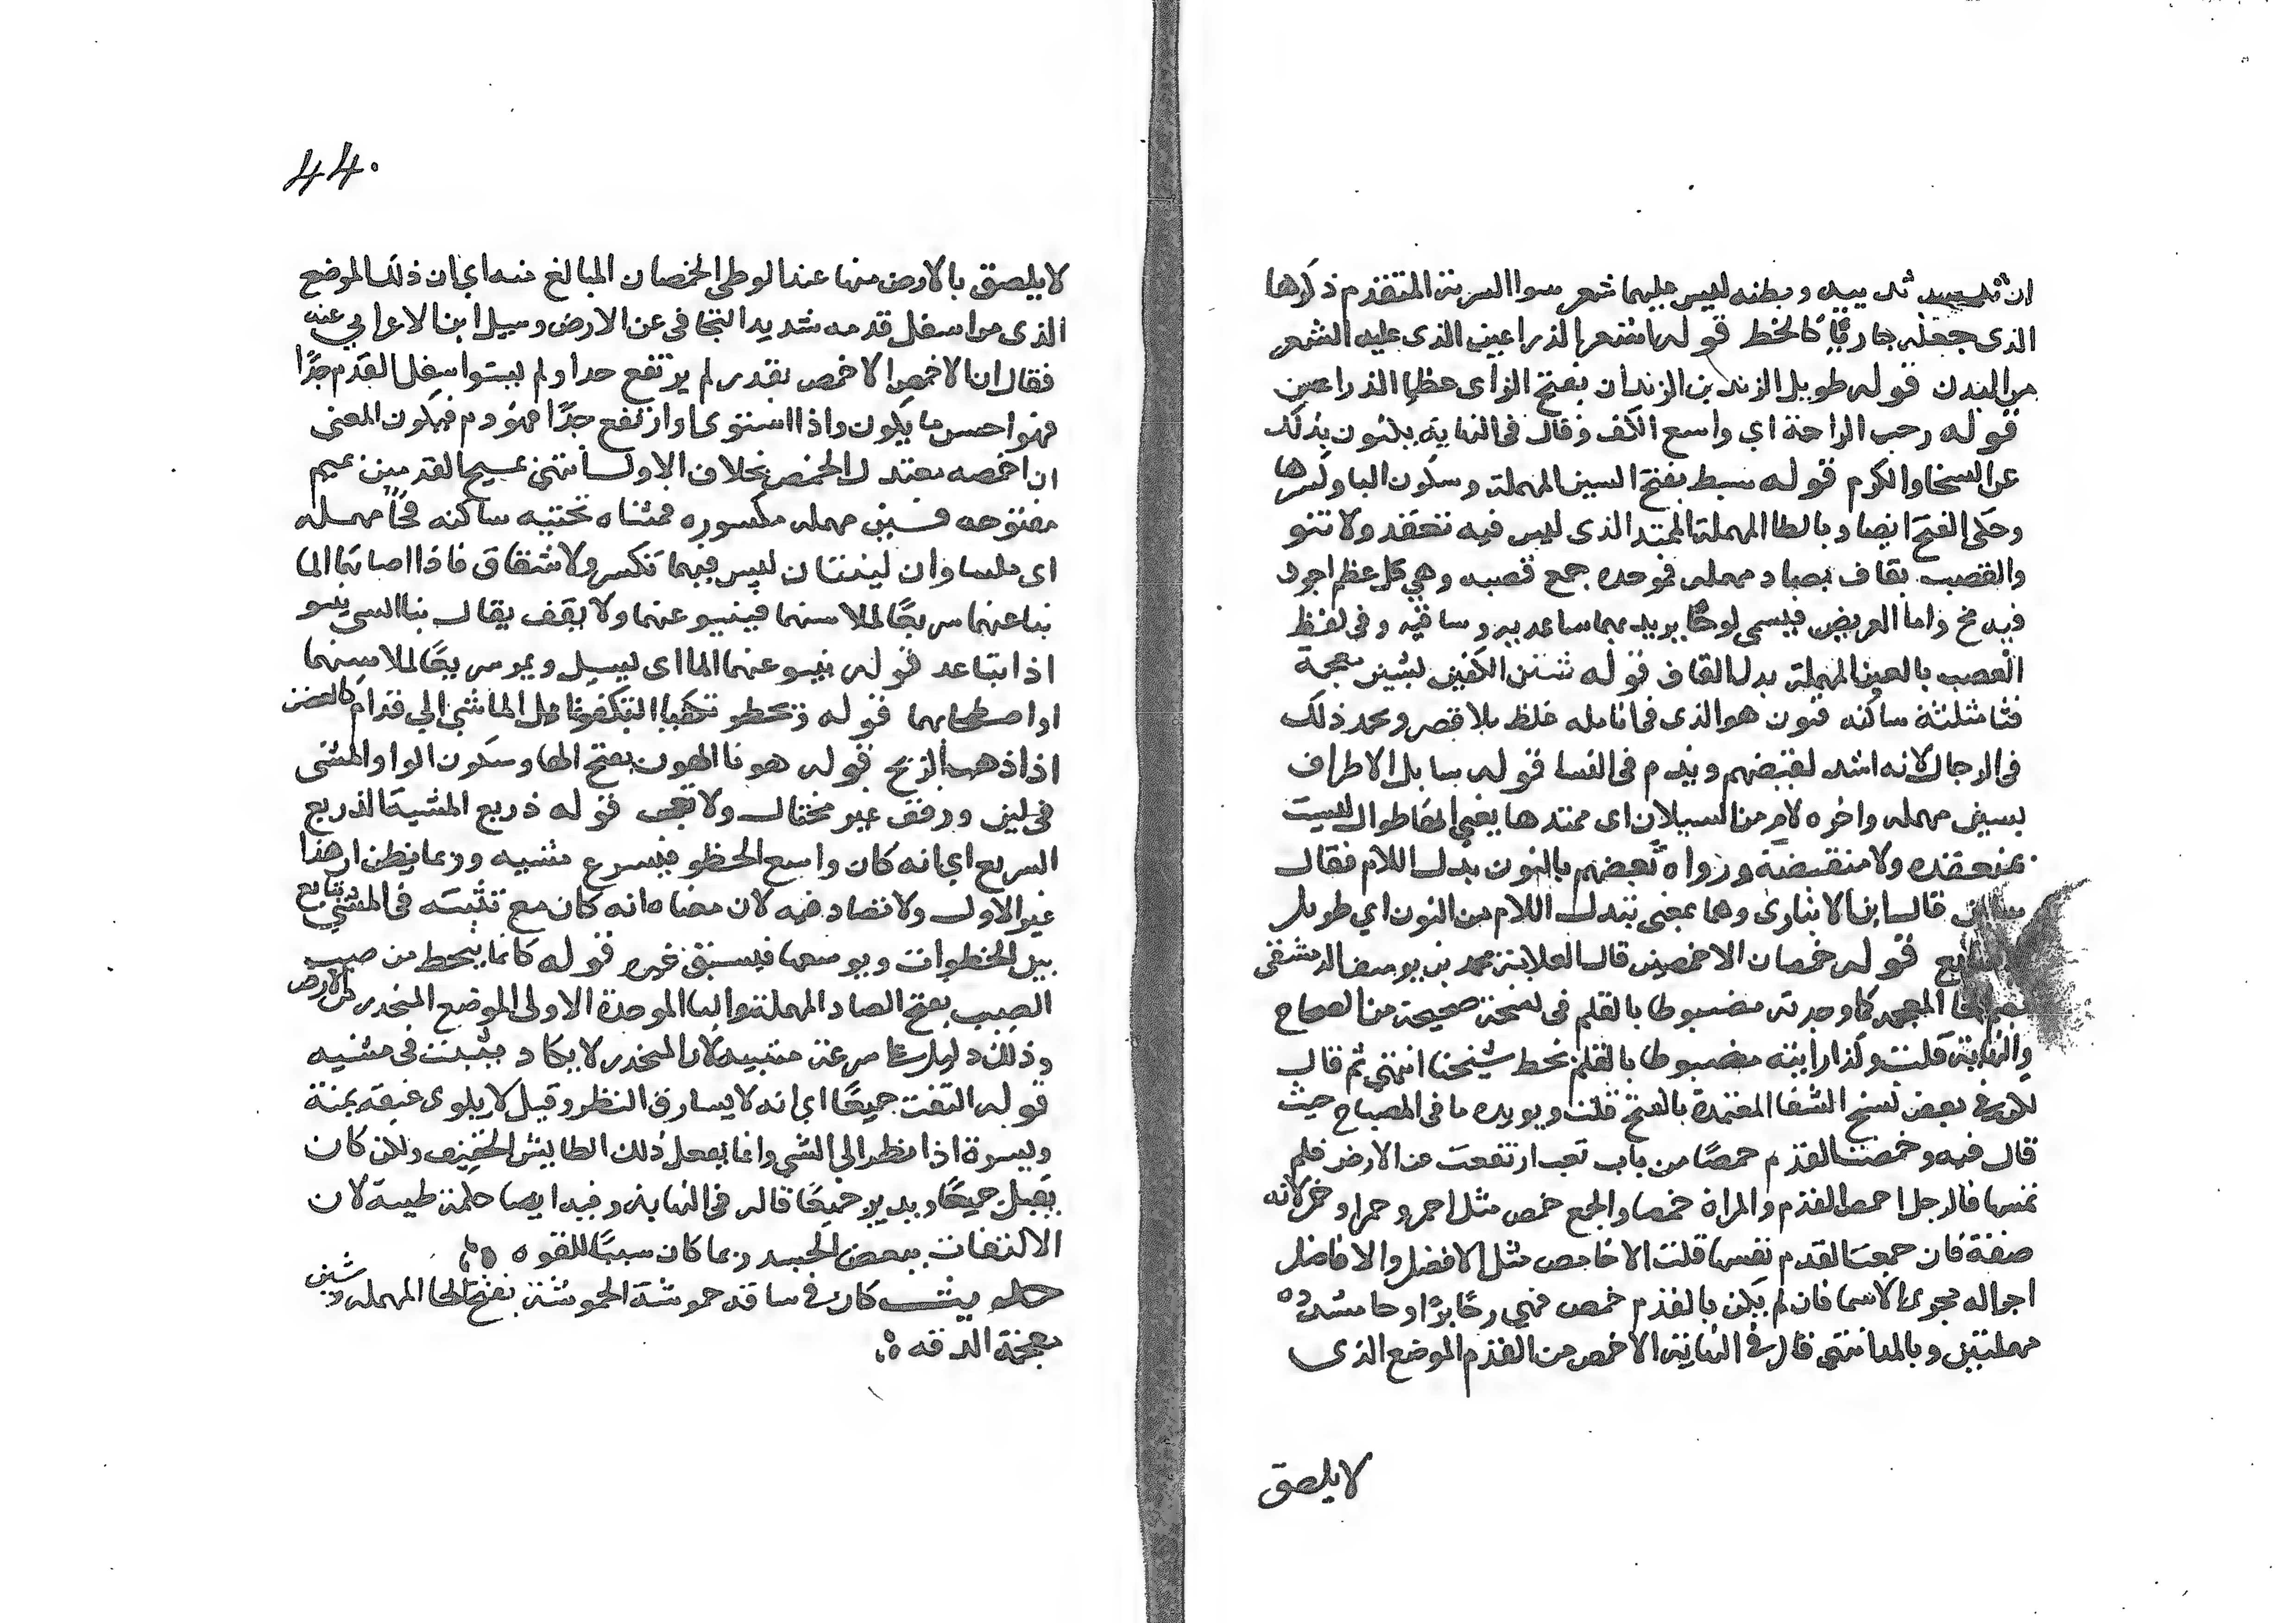 ان ثدييه وبطنه ليس عليهما شعر سوا السربة المتقدم ذكرها
الذى جعله جاريًا كالخط قوله اشعر الذراعين الذى عليه الشعر
من البدن قوله طويل الزندين الزندان بفتح الزاى عظما الذراعين
قوله رحب الراحة اي واسع الكف وقال فى النهاية يكنون بذلك
عن السخا والكرم قوله سبط بفتح السين المهملة وسكون البا وكسرها
وحكى الفتح ايضا وبالطا المهملة الممتد الذى ليس فيه تعقد ولا نتو
والقصب بقاف فصاد مهمله فموحده جمع قصبه وهي كل عظم اجوف
فيه مخ واما العريض فيسمى لوحًا يريد بهما ساعديه وساقيه وفى لفظ
العصب بالعين المهملة بدل القاف قوله شثن الكفين بشين معجمة
فثا مثلثة ساكنه فنون هو الذى فى انامله غلظ بلا قصر ويحمد ذلك
فى الرجال لانه اشد لقبضهم ويذم فى النسا قوله سايل الاطراف
بسين مهمله واخره لام من السيلان اى ممتدها يعني انها طوال ليست
بمنعقده ولا منقبضة ورواه بعضهم بالنون بدل اللام فقال
ساين قال ابن الانبارى وهما بمعنى تبدل اللام من النون اي طويل
الاصابع قوله خمصان الاخمصين قال العلامة محمد بن يوسف الدمشقى
بضم الخا المعجمه كما وجدته مضبوطا بالقلم فى نسخة صحيحة من الصحاح
والنهاية قلت وكذا رايته مضبوطا بالقلم بخط شيخنا انتهي ثم قال
لكن فى بعض نسخ الشفا المعتمدة بالفتح قلت ويويده ما فى المصباح حيث
قال فيه وخمصت القدم خمصًا من باب تعب ارتفعت عن الارض فلم
تمسها فالرجل اخمص القدم والمراة خمصا والجمع خمص مثل احمر وحمرا وحمر لانه
صفة فان جمعت القدم نفسها قلت الاخامص مثل الافضل والافاضل
اجراله مجرى الاسما فان لم يكن بالقدم خمص فهي رحا برا وحا مشددة
مهملتين وبالمد انتهى قال فى النهاية الاخمص من القدم الموضع الذى
لا يلصق
44
لا يلصق بالارض منها عند الوطى الخمصان المبالغ منه اي ان ذلك الموضع
الذى من اسفل قدمه شديد التجافى عن الارض وسيل ابن الاعرابي عنه
فقال ان الاخمص الاخمص بقدر لم يرتفع جدا ولم يستوا سفل القدم جدًّا
فهو احسن ما يكون واذا استوى او ارتفع جدًا فهو ذم فيكون المعنى
ان اخمصه معتدل الخمص بخلاف الاول انتهى مسيح القدمين بميم
مفتوحه فسين مهمله مكسوره فمثناه تحتيه ساكنه فحا مهمله
اى ملساوان لينتان ليس فيهما تكسر ولا شقاق فاذا اصابها الما
نبا عنهما سريعًا لملاستهما فينبو عنهما ولا يقف يقال نبا الشى ينبو
اذا تباعد قوله ينبو عنهما الما اى يسيل ويمر سريعًا لملاستهما
اذا ذهب الريح قوله هونا الهون بفتح الها وسكون الواو المشى
فى لين ورفق غير مختال ولا معجب قوله ذريع المشية الذريع
السريع اي انه كان واسع الخطو فيسرع مشيه وربما يظن ان هذا
غير الاول ولا تضاد فيه لان معناه انه كان مع تثبته فى المشي يتابع
بين الخطوات ويوسعها فيسبق غيره قوله كانما ينحط من صبب
الصبب بفتح الصاد المهملة والبا الموحدة الاولى الموضع المنحدر من الارض
وذلك دليل على سرعة مشيه لان المنحدر لا يكاد يثبت فى مشيه
قوله التفت جميعًا اي انه لا يسارق النظر وقيل لا يلوى عنقه يمنة
ويسرة اذا نظر الي الشي وانما يفعل ذلك الطايش الخفيف ولكن كان
يقبل جميعًا ويدبر جميعًا قاله فى النهاية وفيه ايضا حكمة طبية لان
الالتفات ببعض الجسد ربما كان سببًا للقوه
حديث كان فى ساقه حموشة الحموشة بفتح الحا المهمله وشين
معجمة الدقه